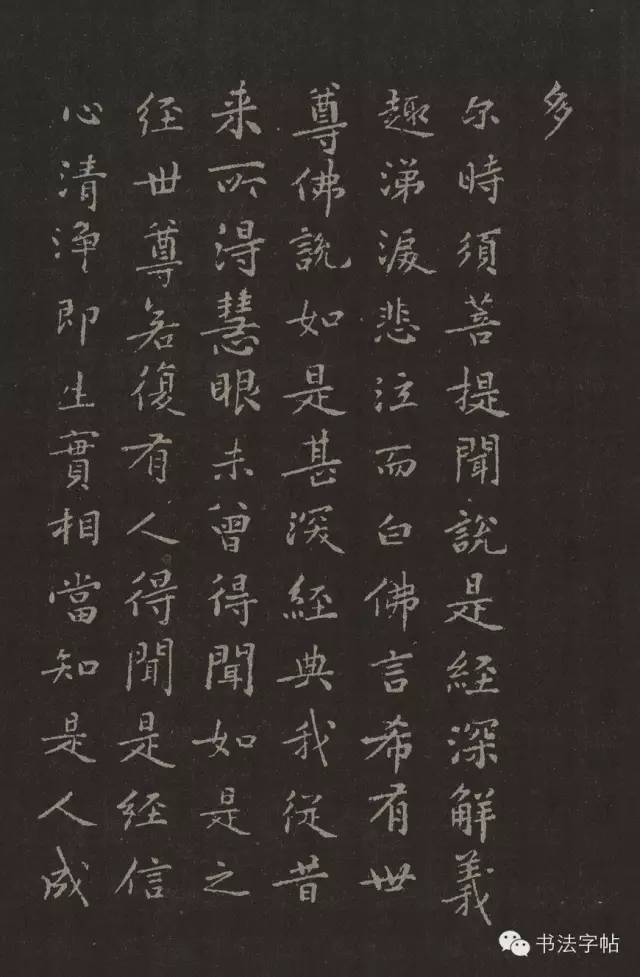 多
尒時須菩提聞說是經深解義
趣涕淚悲泣而白佛言希有世
尊佛說如是甚深經典我從昔
来所得慧眼未曾得聞如是之
經世尊若復有人得聞是經信
心清淨即生實相當知是人成
书法字帖